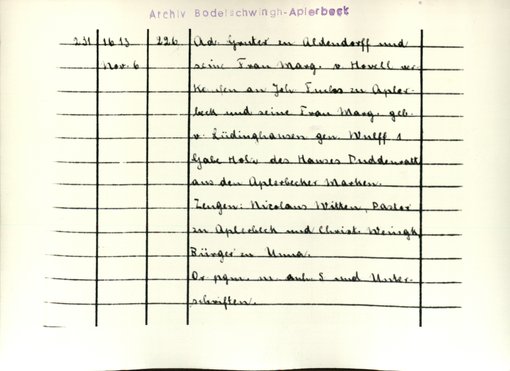 Archiv Bodelschwingh-Aplerbeck
231 1613 226 Ad. Gruter zu Aldendorff und
Nov. 6 seine Frau Marg. v. Hovell ver-
kaufen an Joh. zu Apler-
beck und seine Frau Marg. geb.
v. Lüdinghausen gen. Wulff 1
Gabe Holz des Hauses
aus den Aplerbecker Marken.
Zeugen: Nicolaus Witten, Pastor
zu Aplerbeck und Christ.
Bürger zu Unna.
Or. pgm. m. anh. S und Unter-
schriften.